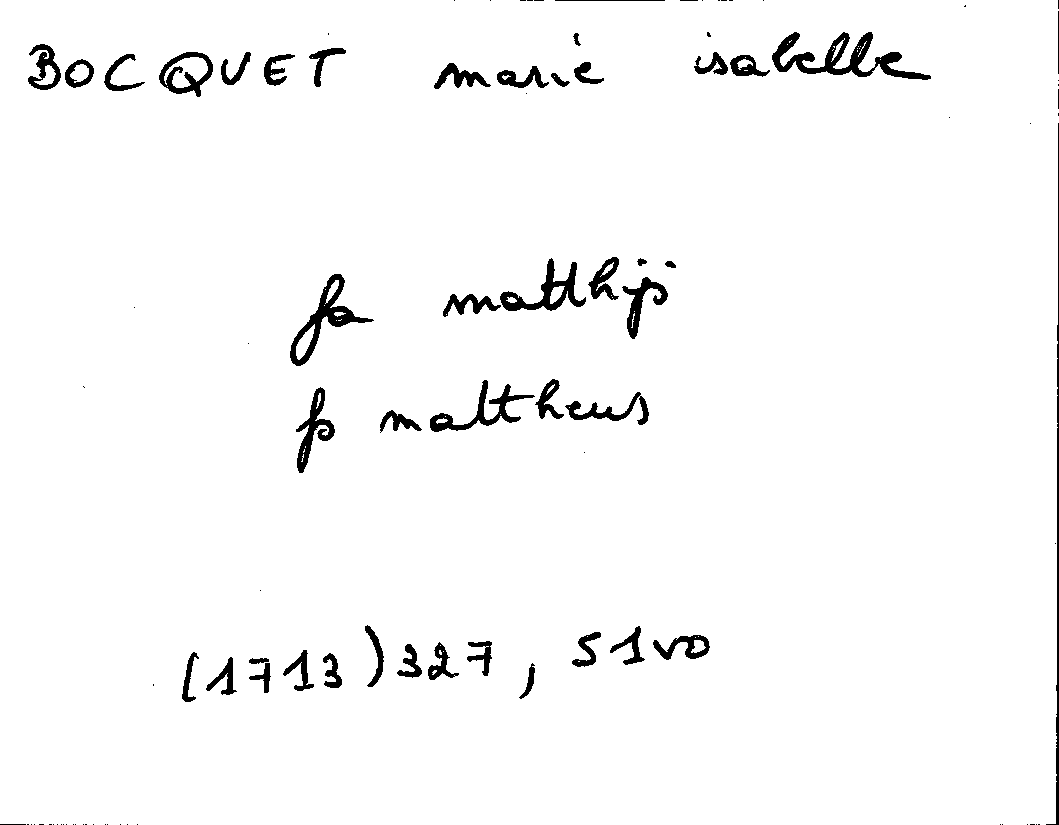 BOCQUET marie isabelle
fa matthijs
fs mattheus
(1713)327, 51vo